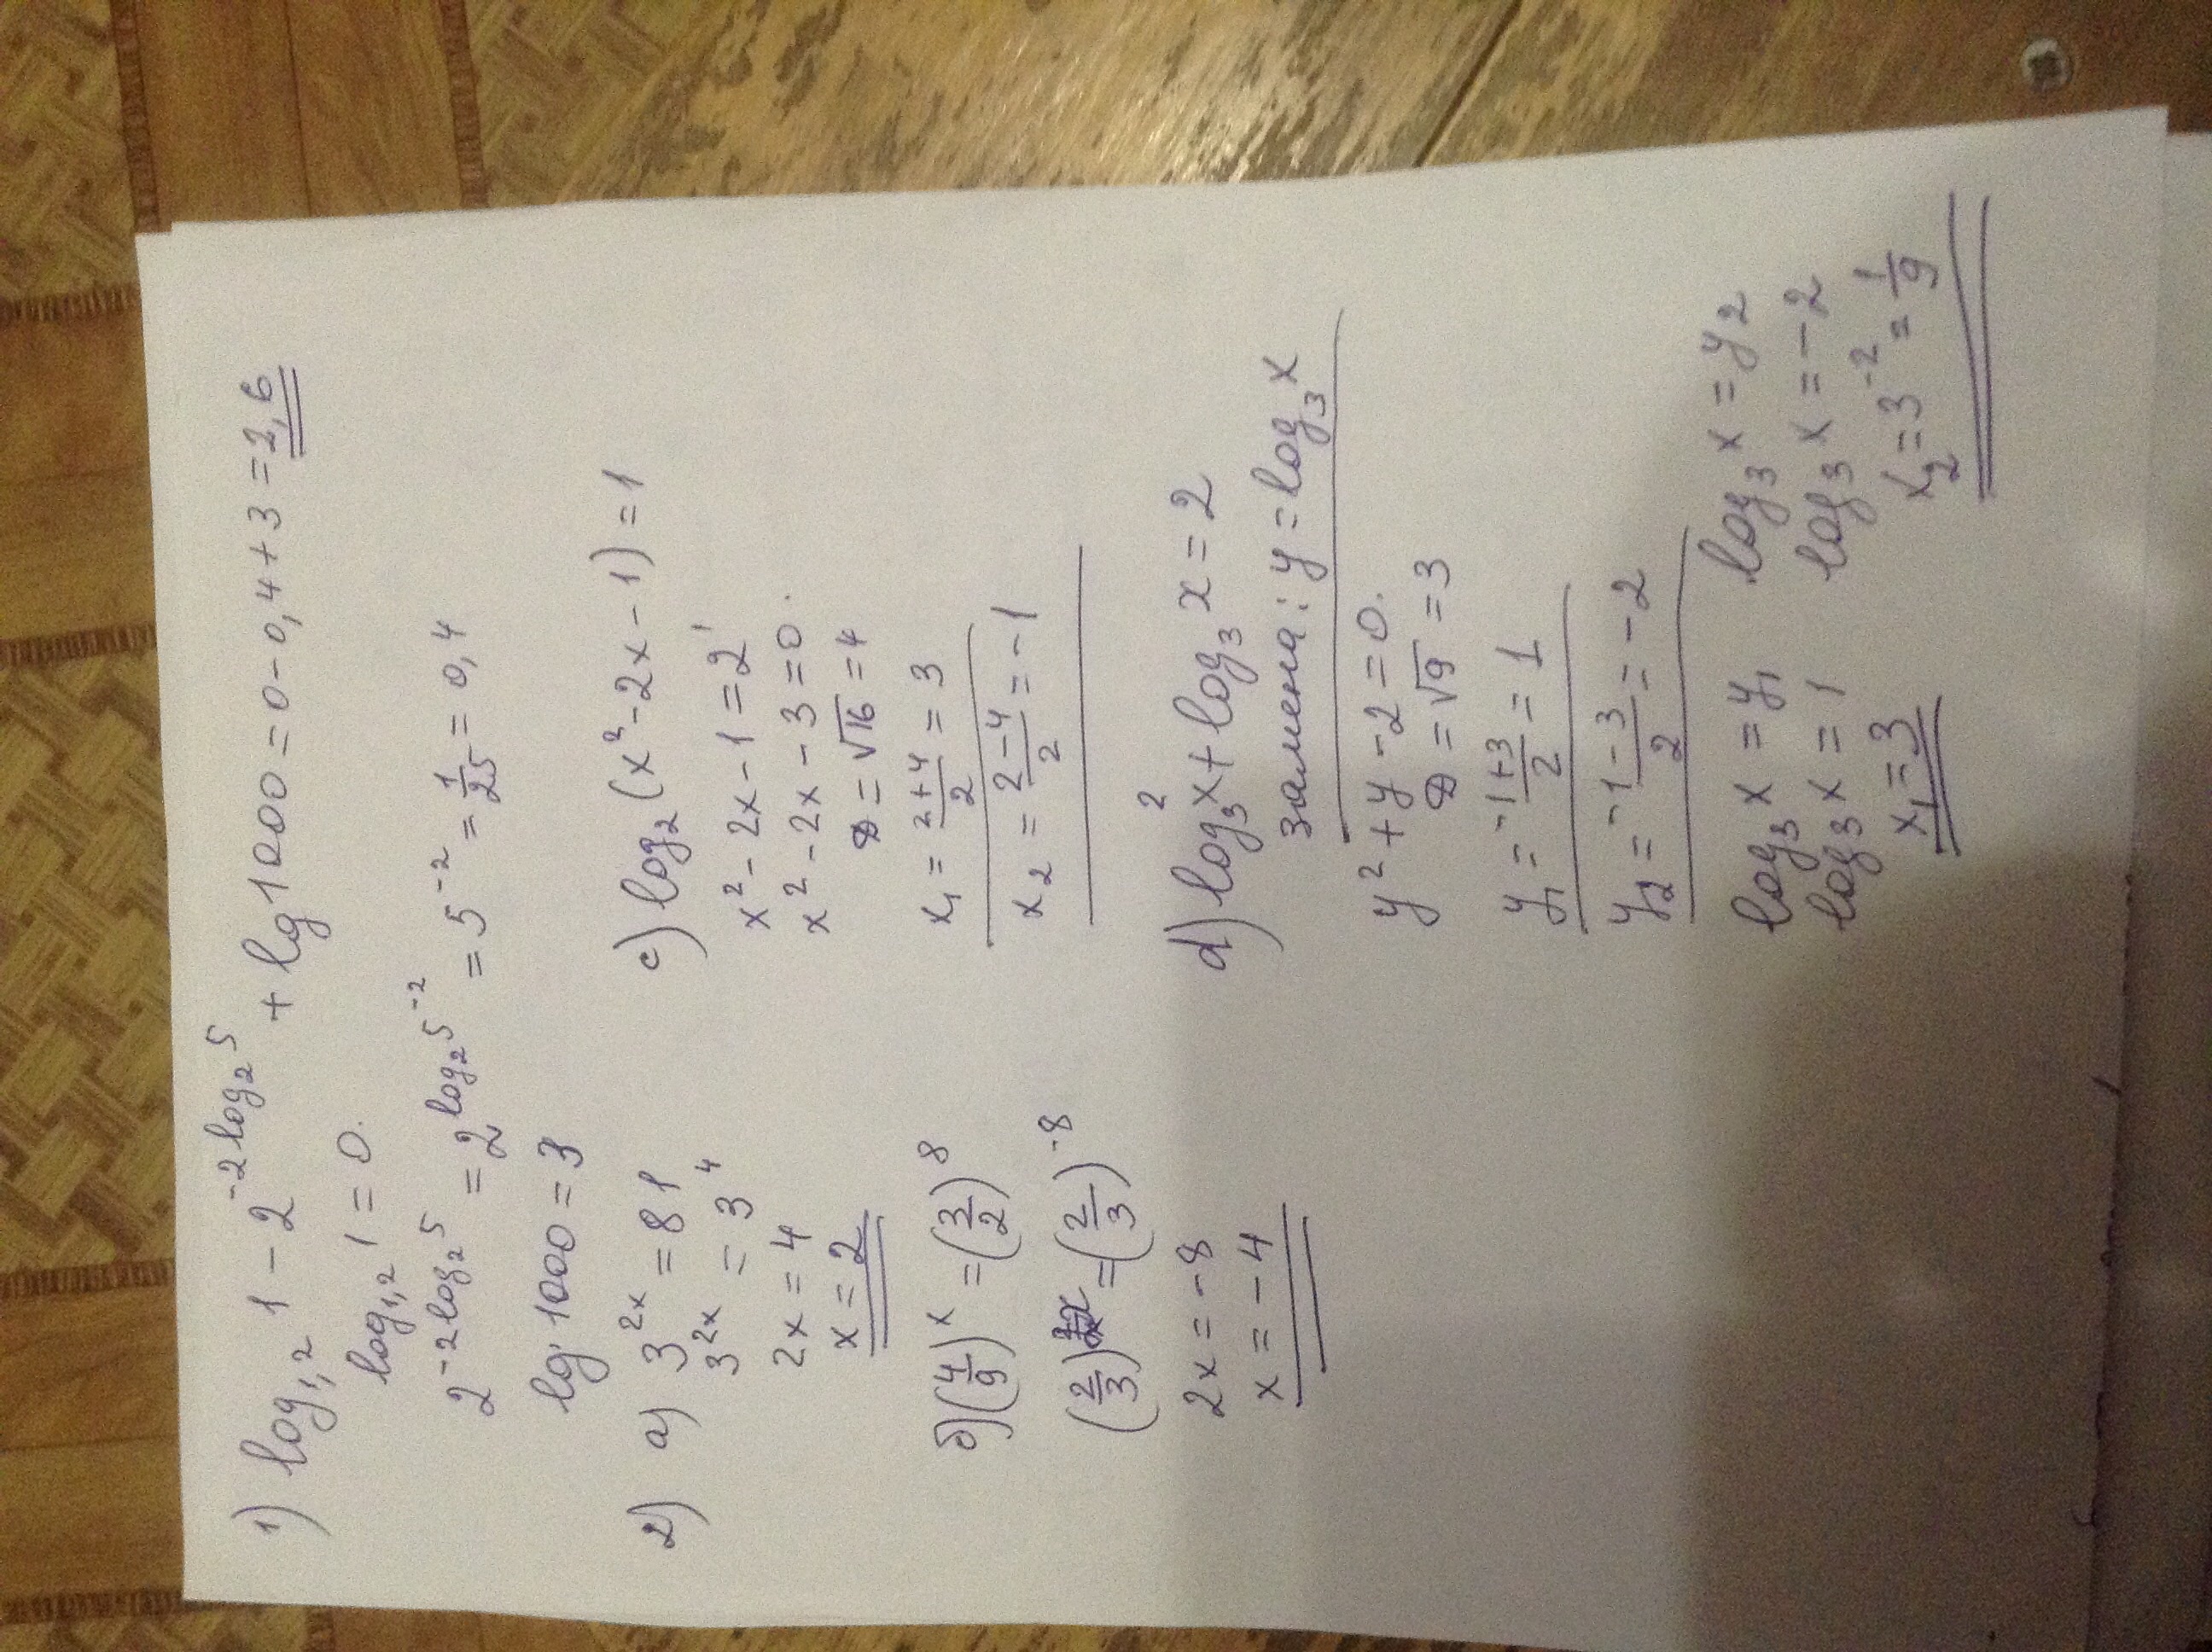 1) log₁,₂ 1 - 2^(-2log₂5) + lg 1000 = 0 - 0,4 + 3 = 2,6
log₁,₂ 1 = 0.
2^(-2log₂5) = 2^(log₂5^(-2)) = 5^(-2) = 1/25 = 0,4
lg 1000 = 3
2) a) 3^(2x) = 81
3^(2x) = 3^4
2x = 4
x = 2
б) (4/9)^x = (3/2)^8
(2/3)^(2x) = (2/3)^(-8)
2x = -8
x = -4
c) log₂(x² - 2x - 1) = 1
x² - 2x - 1 = 2^1
x² - 2x - 3 = 0.
D = √16 = 4
x₁ = (2+4)/2 = 3
x₂ = (2-4)/2 = -1
d) log₃² x + log₃ x = 2
замена: y = log₃ x
y² + y - 2 = 0.
D = √9 = 3
y₁ = (-1+3)/2 = 1
y₂ = (-1-3)/2 = -2
log₃ x = y₁
log₃ x = 1
x₁ = 3
log₃ x = y₂
log₃ x = -2
x₂ = 3^(-2) = 1/9